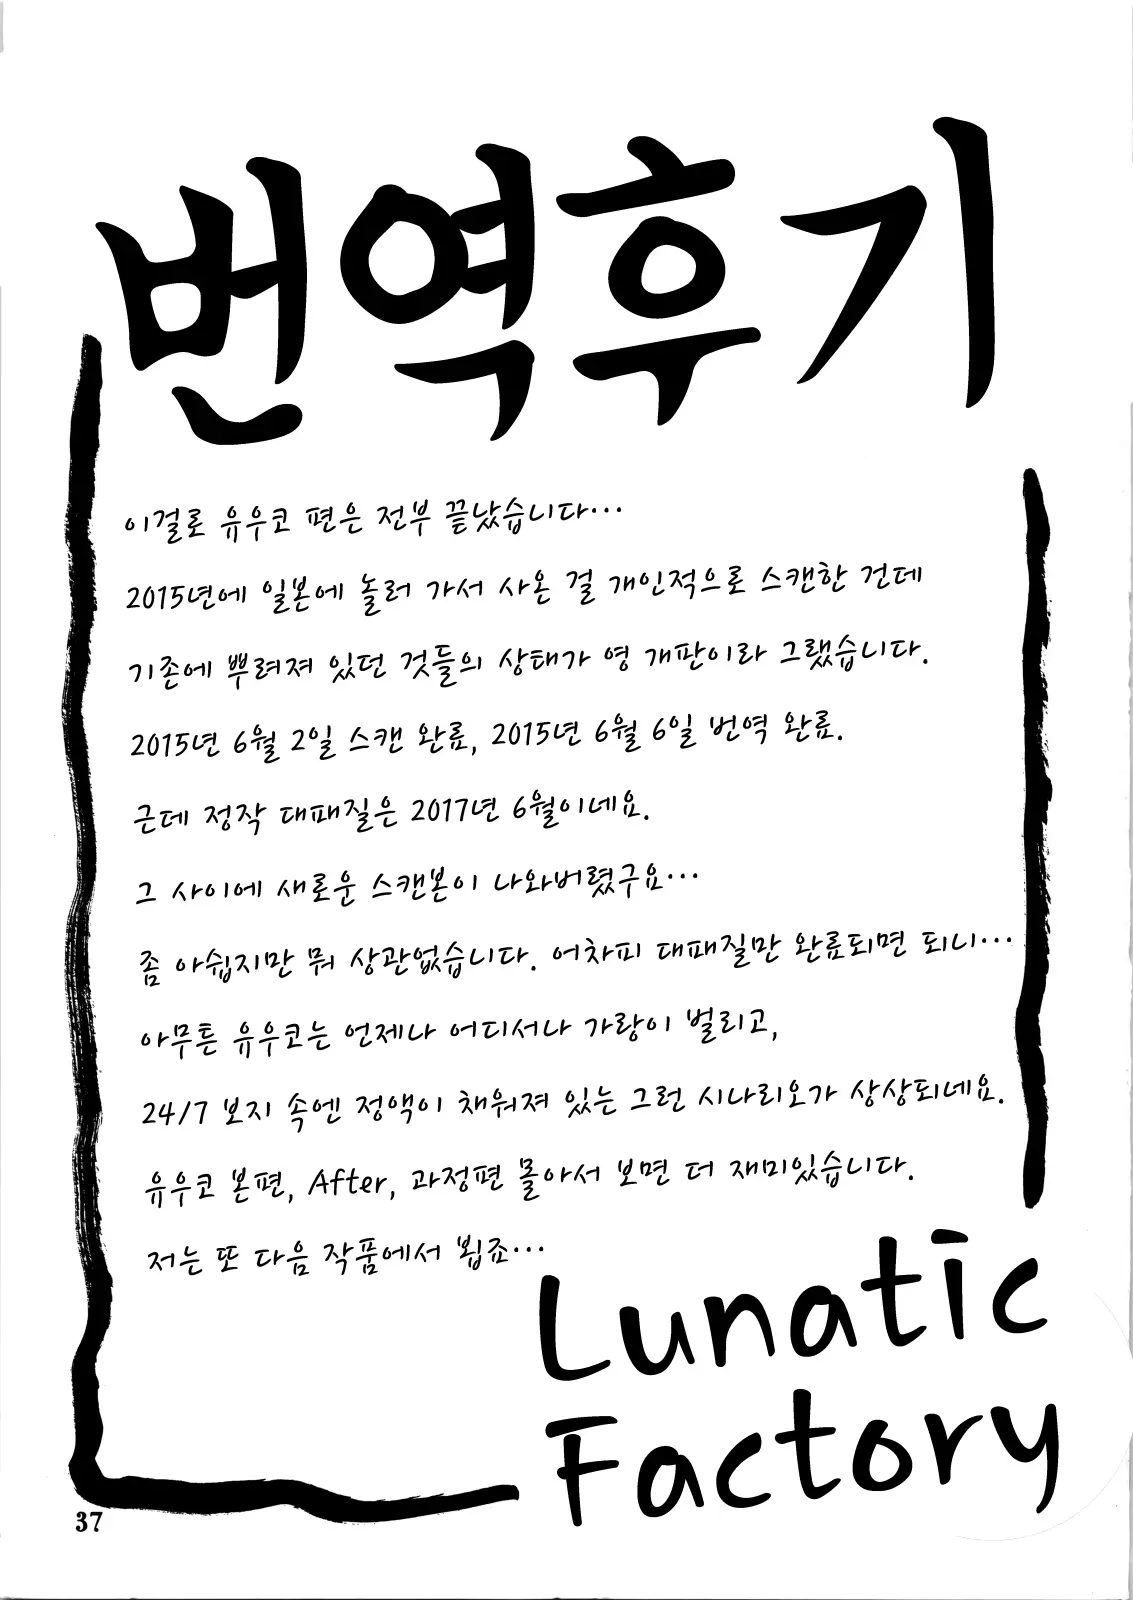 번역후기
이걸로 유우코 편은 전부 끝났습니다…
2015년에 일본에 놀러 가서 사온 걸 개인적으로 스캔한 건데
기존에 뿌려져 있던 것들의 상태가 영 개판이라 그랬습니다.
2015년 6월 2일 스캔 완료, 2015년 6월 6일 번역 완료.
근데 정작 대패질은 2017년 6월이네요.
그 사이에 새로운 스캔본이 나와버렸구요…
좀 아쉽지만 뭐 상관없습니다. 어차피 대패질만 완료되면 되니…
아무튼 유우코는 언제나 어디서나 가랑이 벌리고,
24/7 보지 속엔 정액이 채워져 있는 그런 시나리오가 상상되네요.
유우코 본편, After, 과정편 몰아서 보면 더 재미있습니다.
저는 또 다음 작품에서 뵙죠…
Lunatic
Factory
37